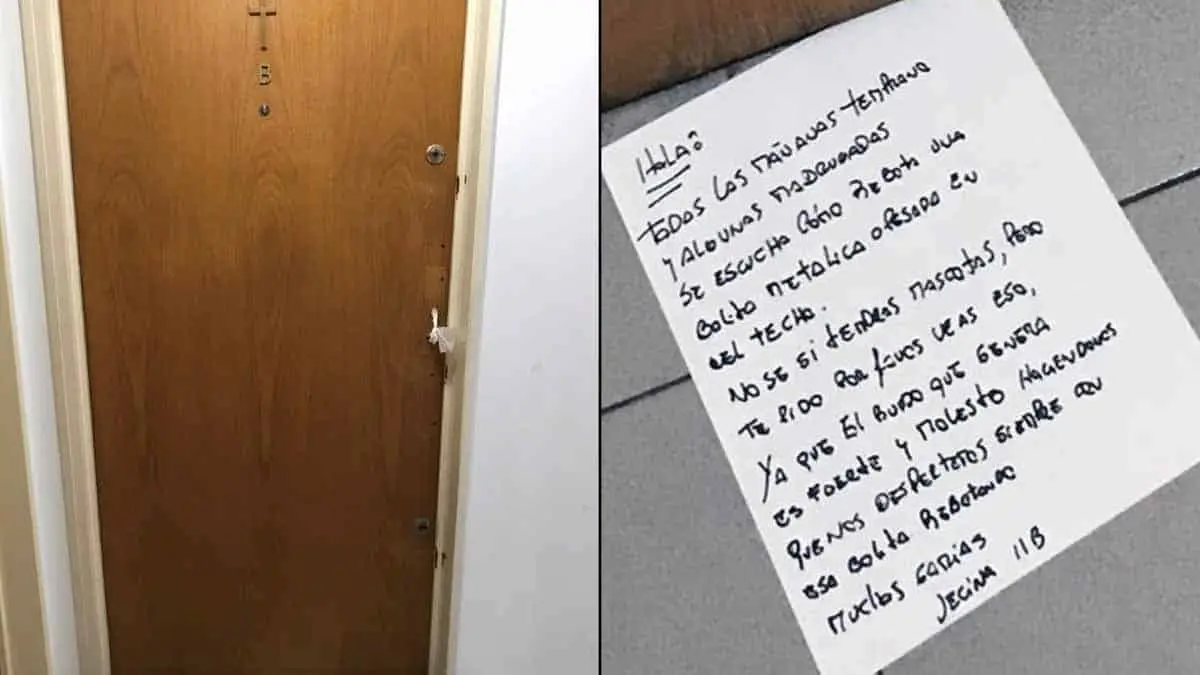 B
HOLA!
TODAS LAS MAÑANAS TEMPRANO
Y ALGUNAS MADRUGADAS
SE ESCUCHA CÓMO REBOTA UNA
BOLITA METALICA O PESADA EN
EL TECHO.
NO SE SI TENDRAS MASCOTAS, PERO
TE PIDO POR FAVOR VEAS ESO,
YA QUE EL RUIDO QUE GENERA
ES FUERTE Y MOLESTO HACIENDONOS
QUE NOS DESPERTEMOS SIEMPRE CON
ESA BOLITA REBOTANDO
MUCHAS GRACIAS
VECINA 11B